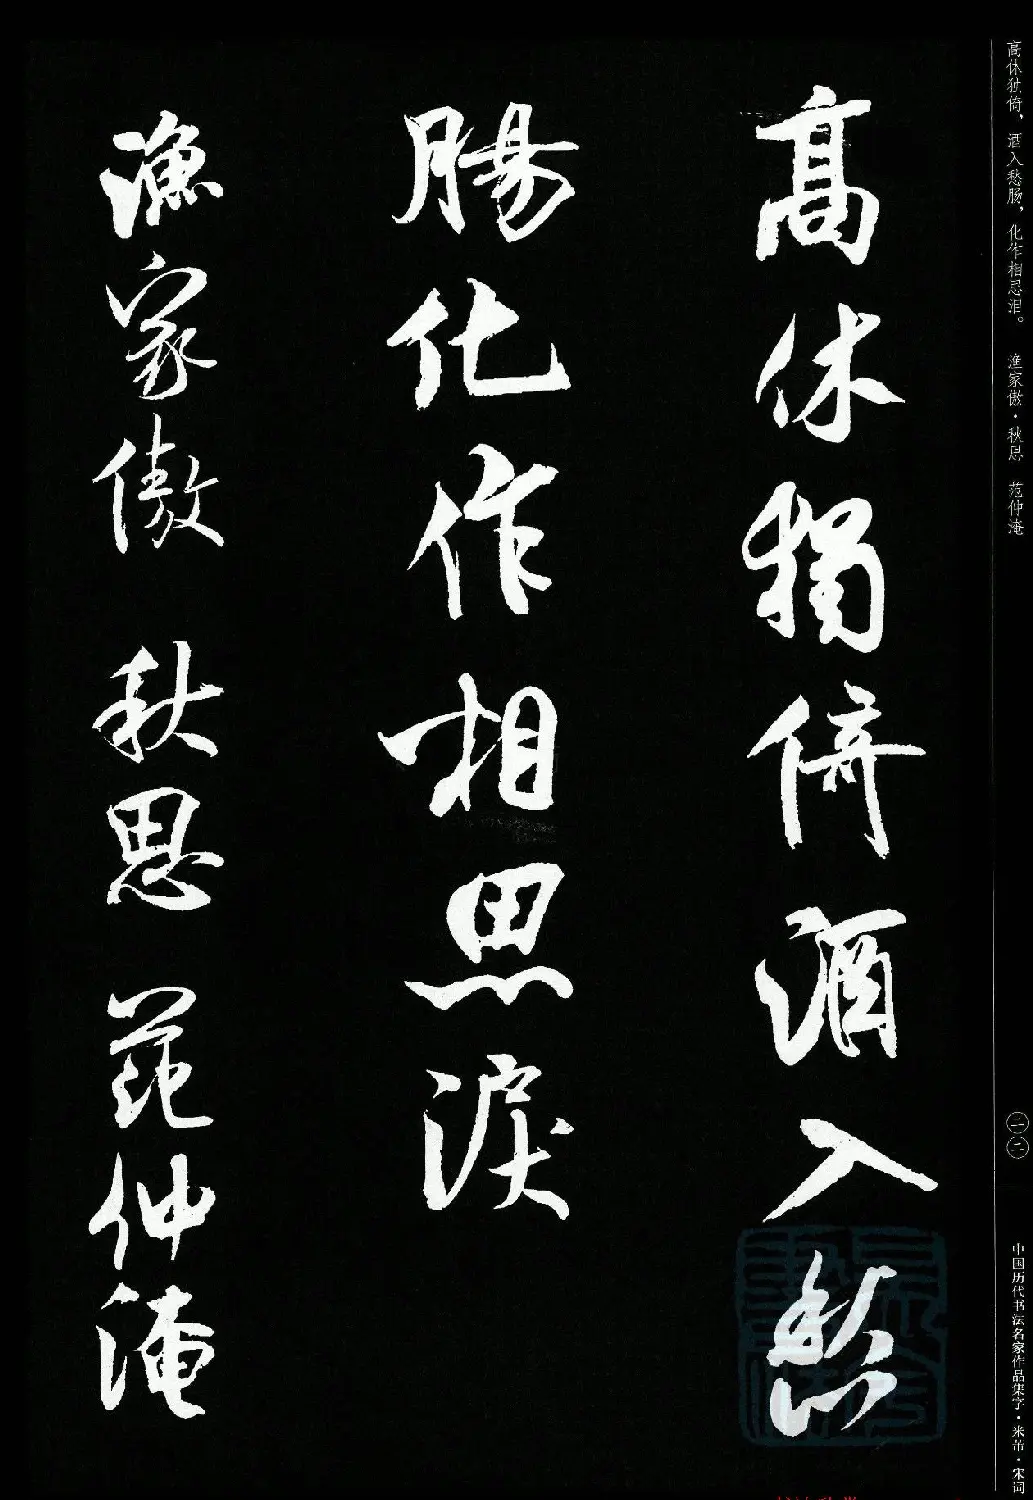 高休独倚，酒入愁肠，化作相思泪。 渔家傲·秋思 范仲淹
高休獨倚酒入愁
腸化作相思淚
漁家傲 秋思 范仲淹
二二
中国历代书法名家作品集字·米芾·宋词